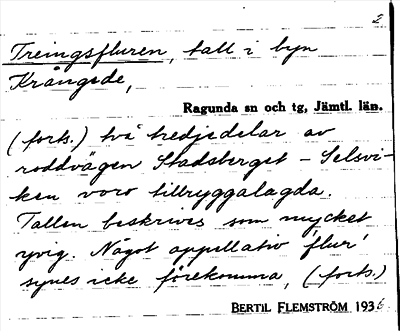 2
Treingsfluren, tall i byn
Krångede,
Ragunda sn och tg, Jämtl. län.
(forts.) två tredjedelar av
roddvägen Stadsberget – Selsvi-
ken voro tillryggalagda.
Tallen beskrives som mycket
yvig. Något appellativ 'flur'
synes icke förekomma, (forts.)
BERTIL FLEMSTRÖM 1936